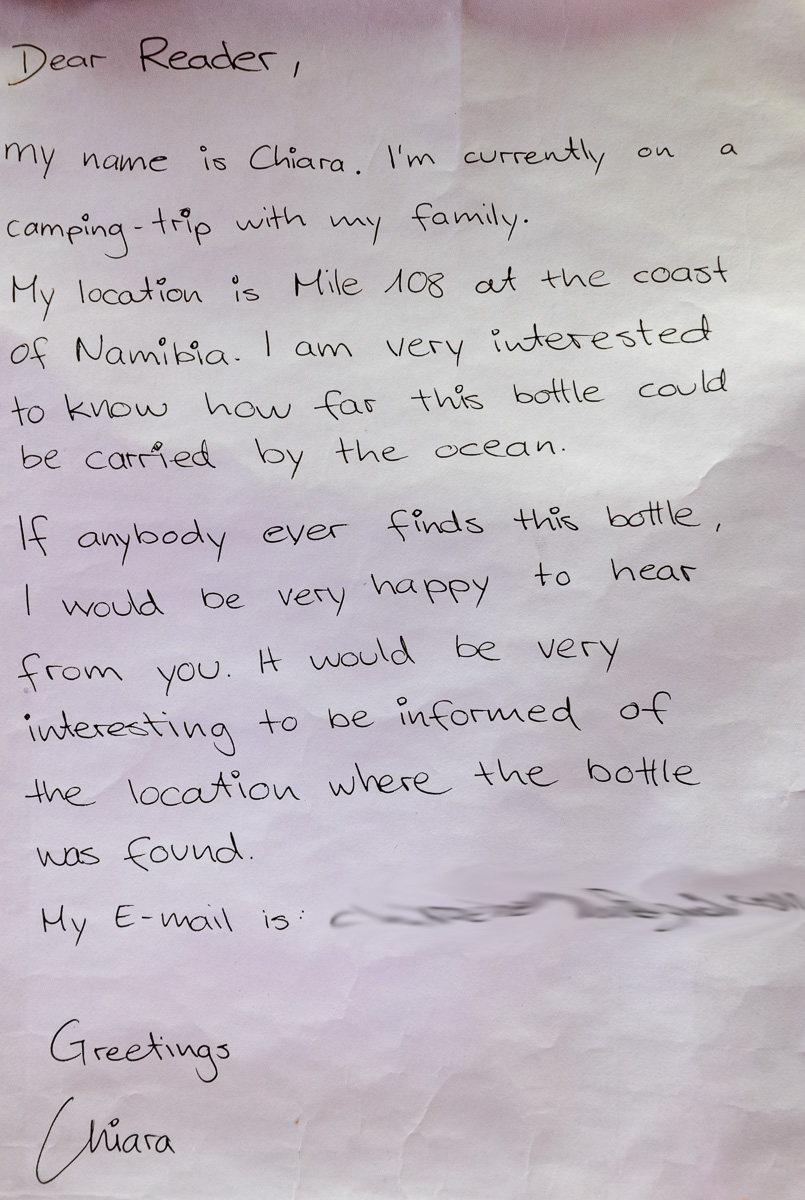 Dear Reader,
My name is Chiara. I'm currently on a
camping-trip with my family.
My location is Mile 108 at the coast
of Namibia. I am very interested
to know how far this bottle could
be carried by the ocean.
If anybody ever finds this bottle,
I would be very happy to hear
from you. It would be very
interesting to be informed of
the location where the bottle
was found.
My E-mail is:
Greetings
Chiara